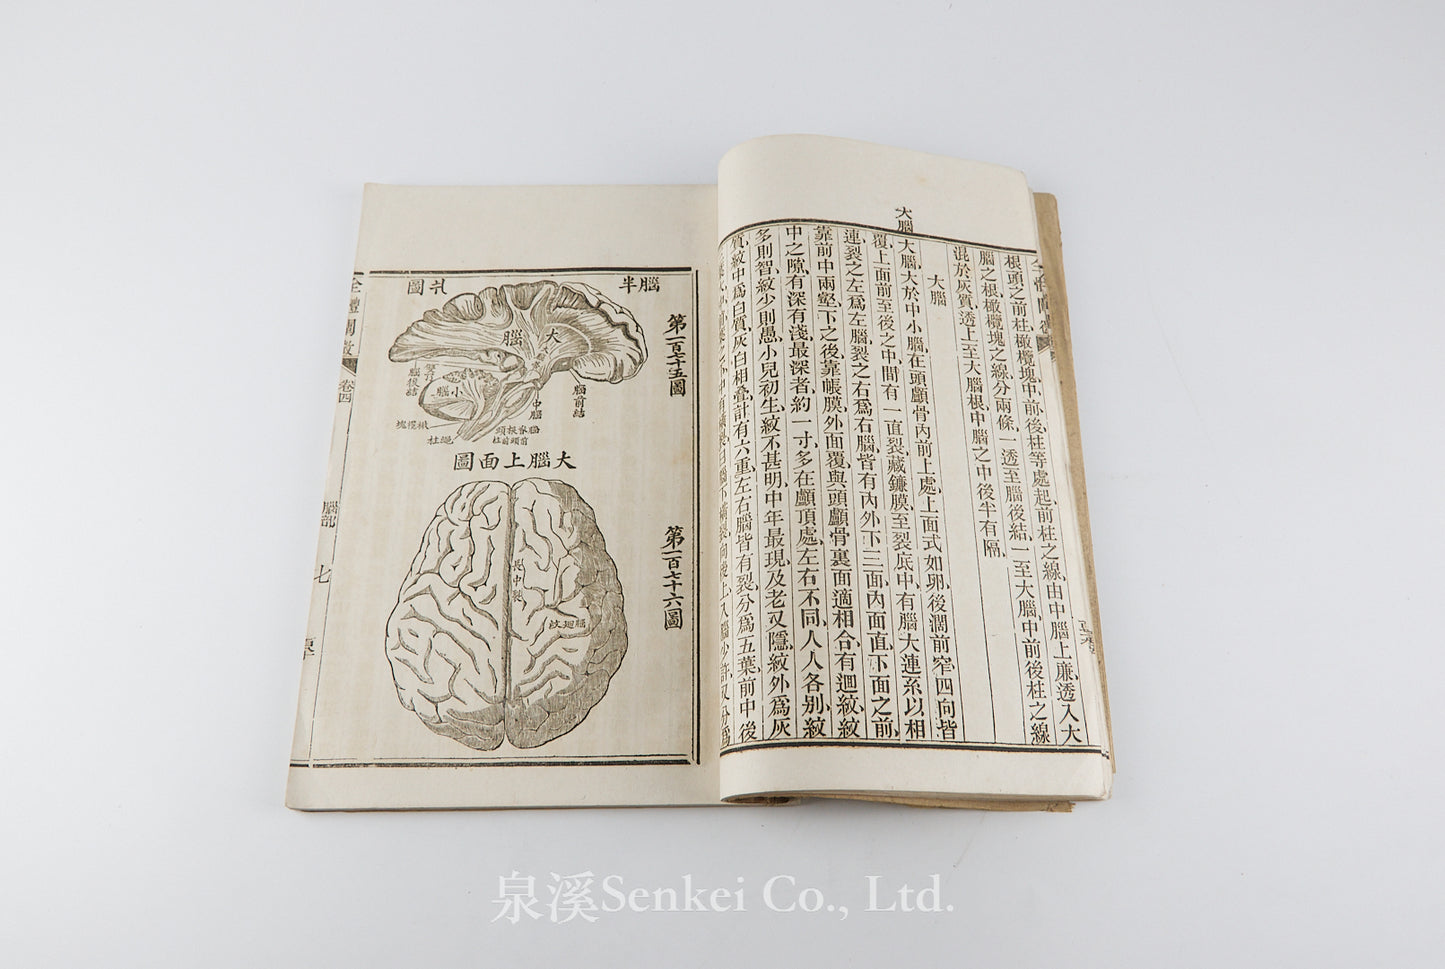 大腦
根頭之前柱橄欖塊中前後柱等處起前柱之線由中腦上廉透入大
腦之根橄欖塊之線分兩條一透至腦後結一至大腦中前後柱之線
混於灰質透上至大腦根中腦之中後半有隔
大腦
大腦大於中小腦在頭顱骨內前上處上面式如卵後濶前窄四向皆
覆上面前至後之中間有一直裂藏鐮膜至裂底中有腦大連系以相
連裂之左爲左腦裂之右爲右腦皆有內外下三面內面直下面之前
靠前中兩壑下之後靠帳膜外面覆與頭顱骨裏面適相合有迴紋紋
中之隙有深有淺最深者約一寸多在顱頂處左右不同人人各别紋
多則智紋少則愚小兒初生紋不甚明中年最現及老又隱紋外爲灰
質紋中爲白質灰白相叠計有六重左右腦皆有裂分爲五葉前中後
腦半
圖
第一百七十五圖
大腦
小腦
中腦
腦前結
腦後結
橄欖塊
繩柱
大腦上面圖
第一百七十六圖
長中裂
腦迴紋
全體闡微
卷四
腦部
七
泉溪Senkei Co., Ltd.